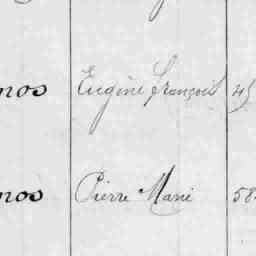 nos Eugène François 45
nos Pierre Marie 58